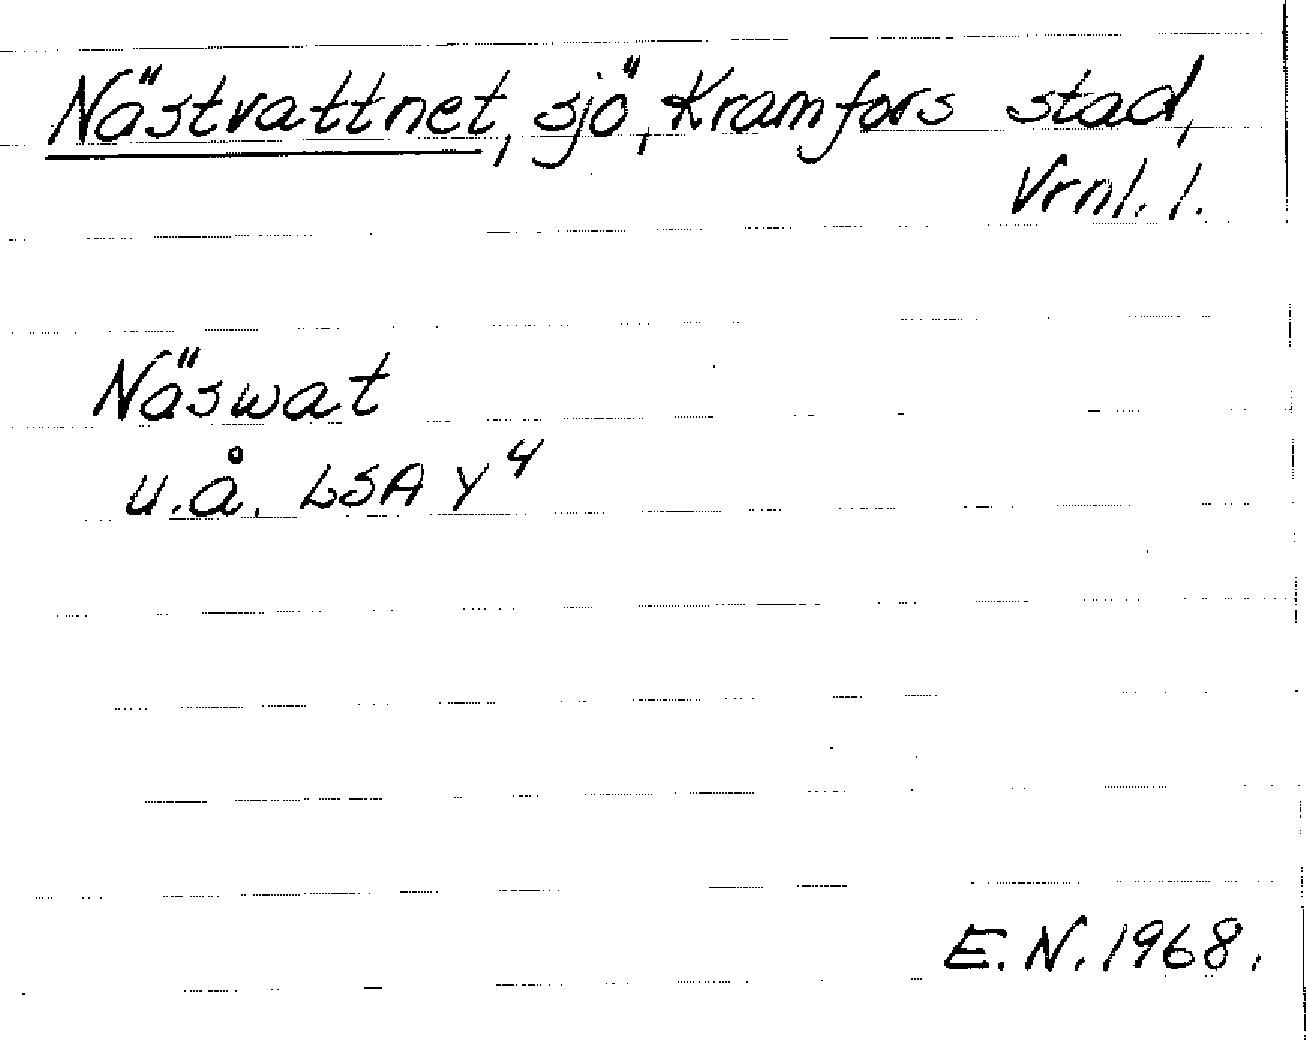 Nästvattnet, sjö, Kramfors stad,
Vrnl. l.
Näswat
u.å. LSA Y⁴
E.N. 1968.